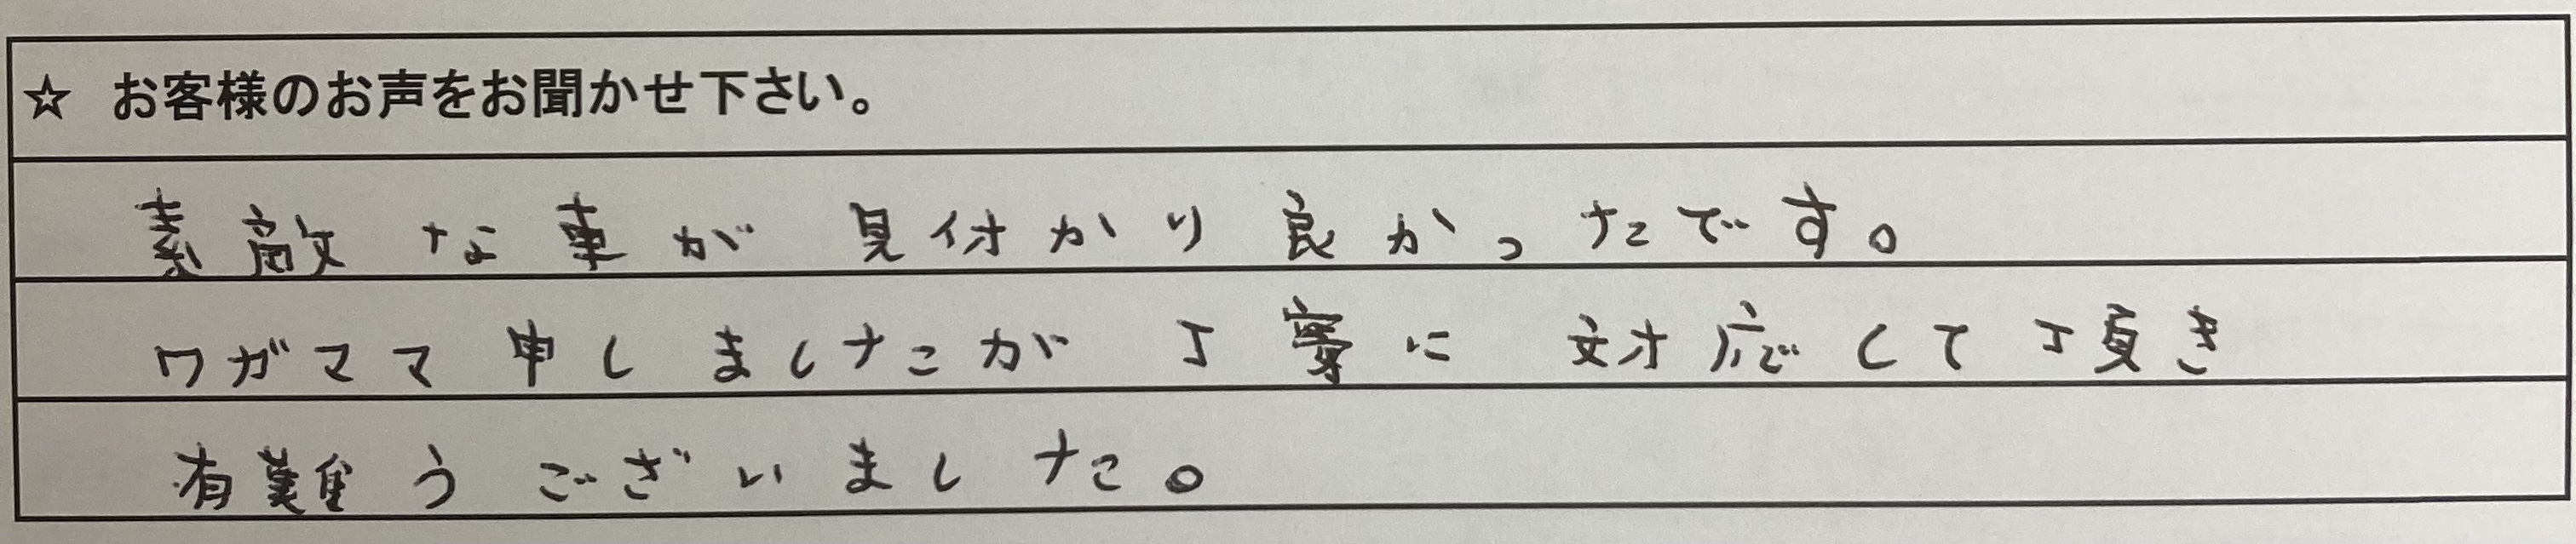 ☆ お客様のお声をお聞かせ下さい。
素敵な車が見付かり良かったです。
ワガママ申しましたが丁寧に対応して頂き
有難うございました。